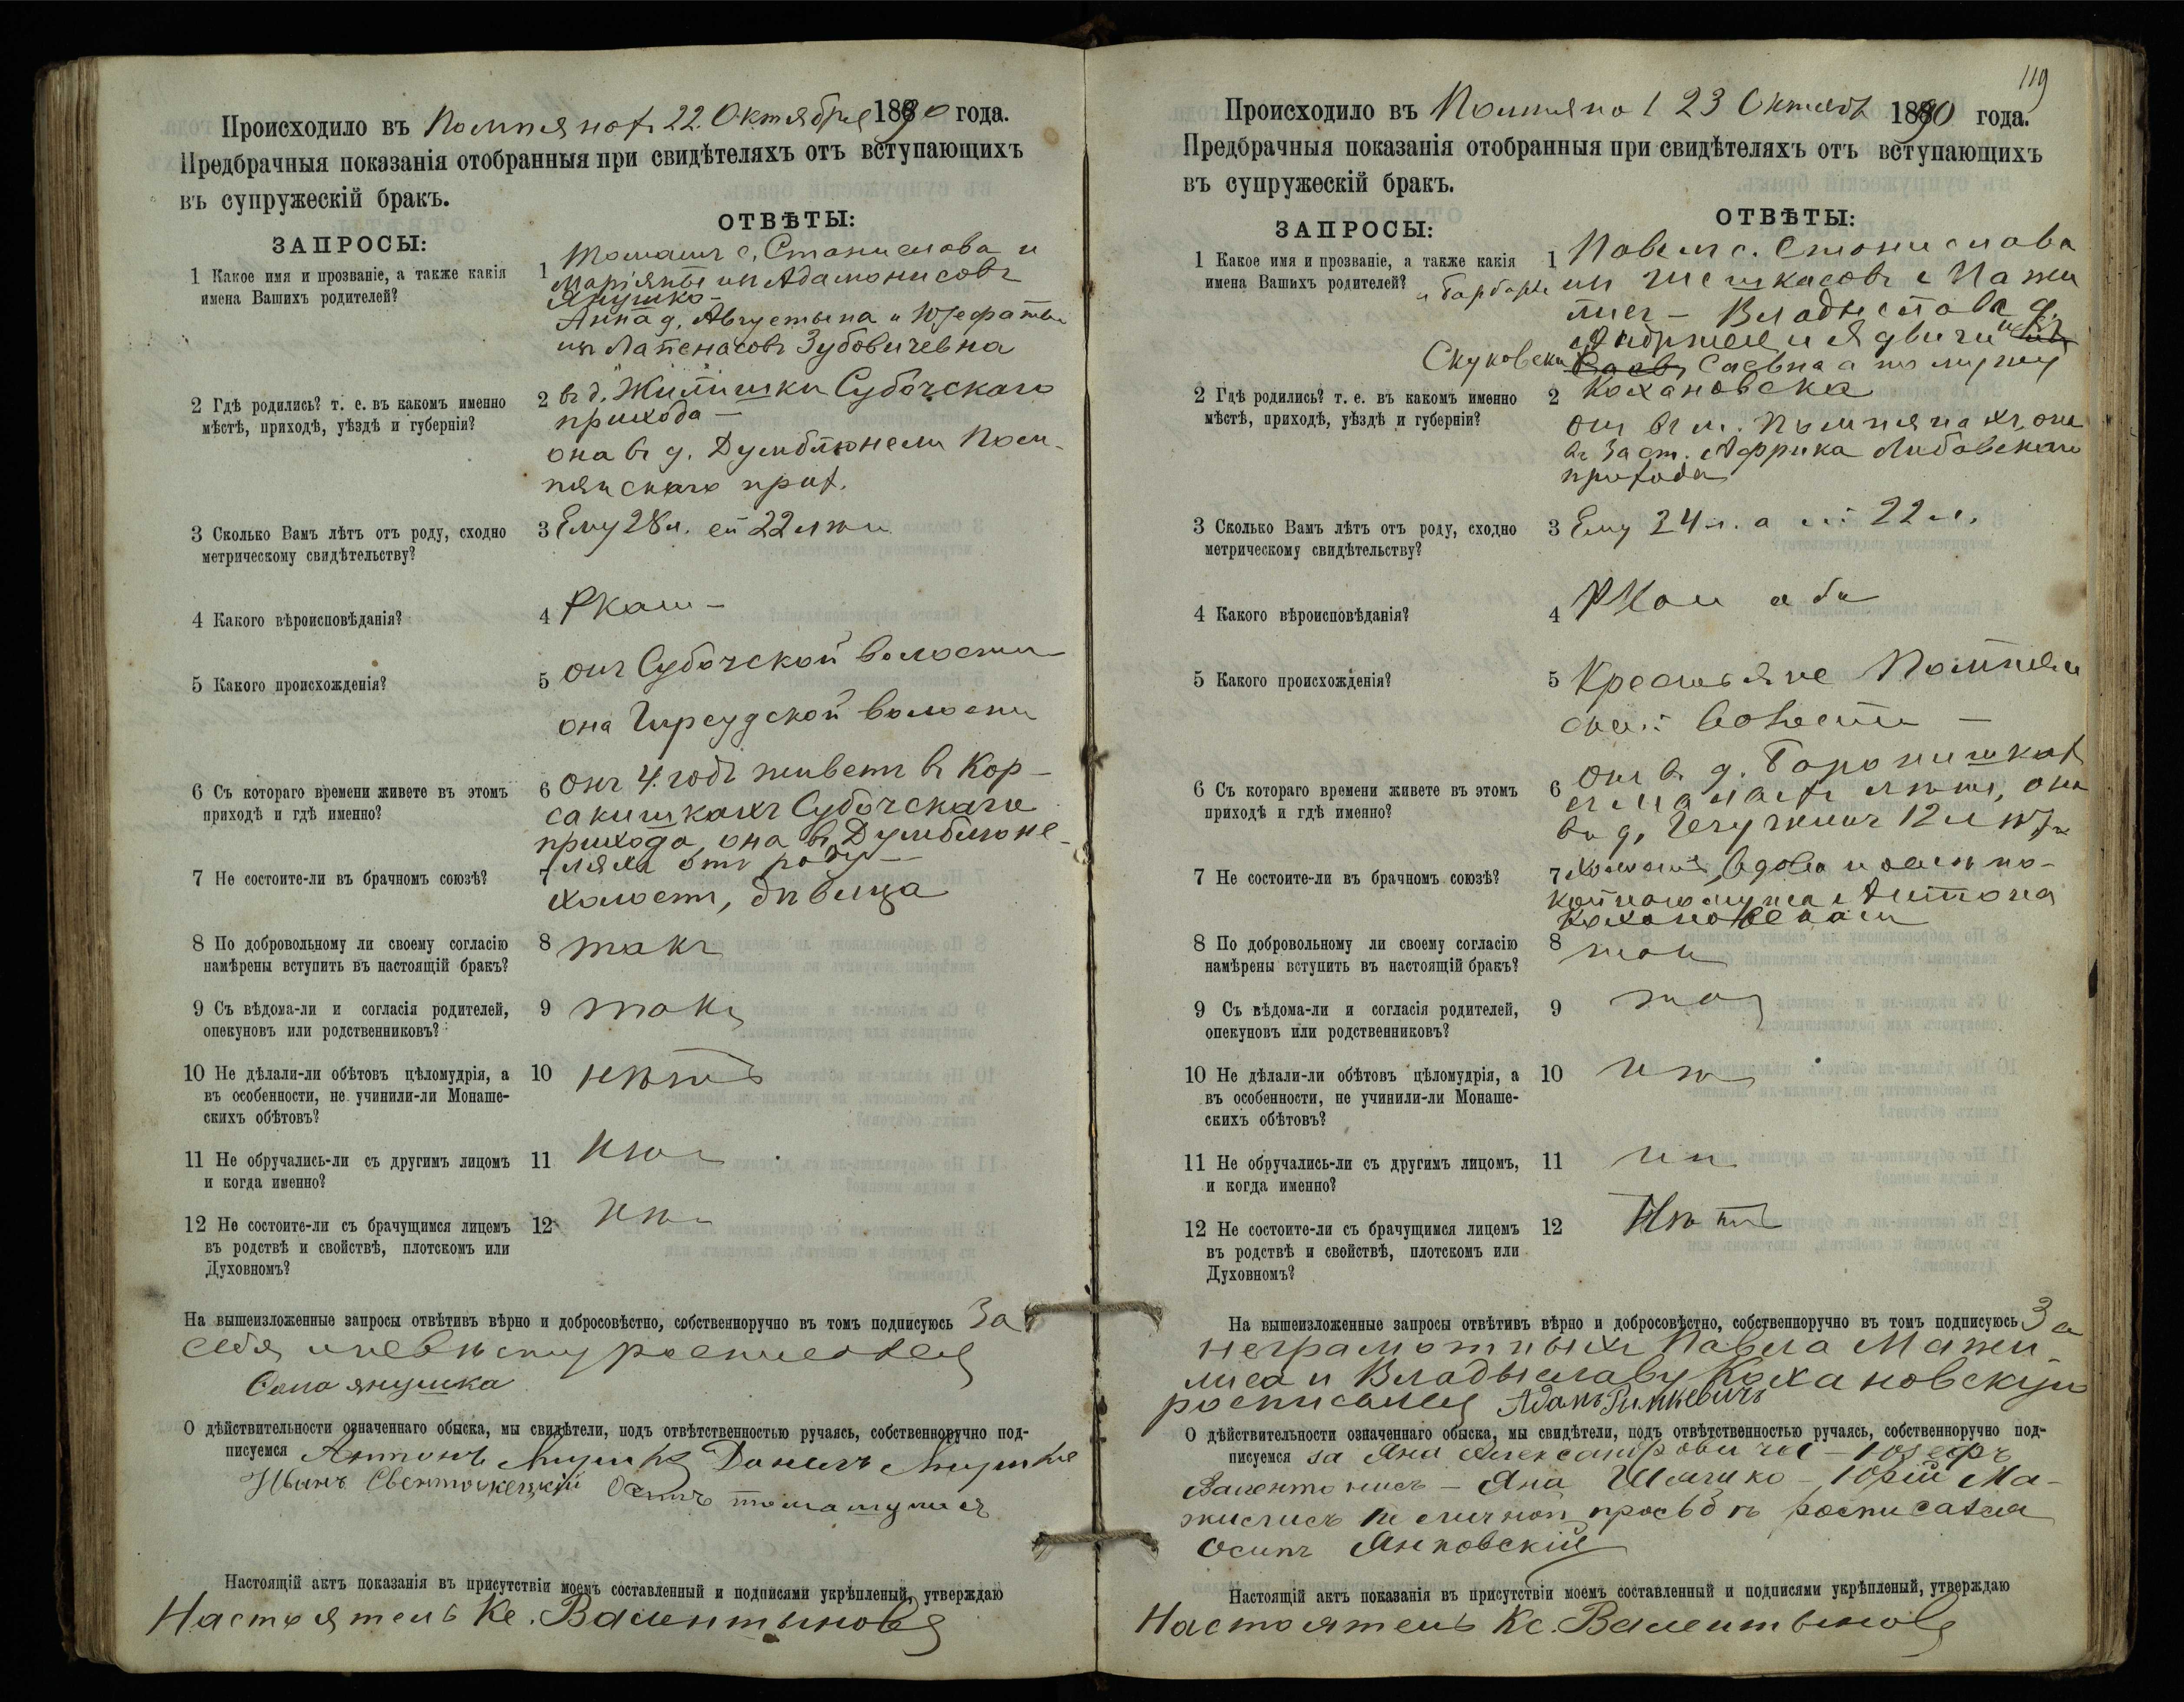 Происходило въ Помпянах 22. Октября 1890 года.
Предбрачныя показанія отобранныя при свидѣтеляхъ отъ вступающихъ
въ супружескій бракъ.
ЗАПРОСЫ:
ОТВѢТЫ:
1 Какое имя и прозваніе, а также какія
имена Вашихъ родителей?
1 Томашъ с. Станислава и
Маріяны из Адамонисовъ
Янушко -
Анна д. Августына и Юзефаты
из Лапенасовъ Зубовичевна
2 Гдѣ родились? т. е. въ какомъ именно
мѣстѣ, приходѣ, уѣздѣ и губерніи?
2 въ д. Субочскаго
прихода -
она въ д. Думблюнели Пом-
пянскаго прих.
3 Сколько Вамъ лѣтъ отъ роду, сходно
метрическому свидѣтельству?
3 Ему 28 л. ей 22 лѣт
4 Какого вѣроисповѣданія?
4 Ркат -
5 Какого происхожденія?
5 онъ Субочской волости
она Гирсудской волости
6 Съ котораго времени живете въ этомъ
приходѣ и гдѣ именно?
6 Онъ 4. годъ живетъ въ Кор-
сакишкахъ Субочскаго
прихода, она въ Думблюне-
ляхъ отъ роду -
7 Не состоите-ли въ брачномъ союзѣ?
7 холостъ, дѣвица
8 По добровольному ли своему согласію
намѣрены вступить въ настоящій бракъ?
8 такъ
9 Съ вѣдома-ли и согласія родителей,
опекуновъ или родственниковъ?
9 такъ
10 Не дѣлали-ли обѣтовъ цѣломудрія, а
въ особенности, не учинили-ли Монаше-
скихъ обѣтовъ?
10 нѣтъ
11 Не обручались-ли съ другимъ лицомъ
и когда именно?
11
12 Не состоите-ли съ брачущимся лицемъ
въ родствѣ и свойствѣ, плотскомъ или
Духовномъ?
12
На вышеизложенные запросы отвѣтивъ вѣрно и добросовѣстно, собственноручно въ томъ подписуюсь За
себя и невѣсту росписался
янушка
О дѣйствительности означеннаго обыска, мы свидѣтели, подъ отвѣтственностью ручаясь, собственноручно под-
писуемся Антонъ
Иванъ
Настоящій актъ показанія въ присутствіи моемъ составленный и подписями укрѣпленый, утверждаю
Настоятель Кс. Валентыновъ
119
Происходило въ Помпянах 23 Октяб 1890 года.
Предбрачныя показанія отобранныя при свидѣтеляхъ отъ вступающихъ
въ супружескій бракъ.
ЗАПРОСЫ:
ОТВѢТЫ:
1 Какое имя и прозваніе, а также какія
имена Вашихъ родителей?
1 Павелъ с. Станислава
и Барбары из Шешкасовъ Мажи
лис - Владыслава д.
Андржея и Ядвиги из
Скуковски а по мужу
Кохановска
2 Гдѣ родились? т. е. въ какомъ именно
мѣстѣ, приходѣ, уѣздѣ и губерніи?
2 он въ м. Помпянахъ, она
въ Заст. Африка Либавскаго
прихода
3 Сколько Вамъ лѣтъ отъ роду, сходно
метрическому свидѣтельству?
3 Ему 24 л. а ей 22 л.
4 Какого вѣроисповѣданія?
4 РКат оба
5 Какого происхожденія?
5 Крестьяне Помпян
ской волости -
6 Съ котораго времени живете въ этомъ
приходѣ и гдѣ именно?
6 Онъ въ д.
съ малыхъ лѣтъ, она
въ д. 12 л
7 Не состоите-ли въ брачномъ союзѣ?
7 Холостъ, вдова послѣ по-
койнаго мужа Антона
Кохановскаго
8 По добровольному ли своему согласію
намѣрены вступить въ настоящій бракъ?
8 так
9 Съ вѣдома-ли и согласія родителей,
опекуновъ или родственниковъ?
9 так
10 Не дѣлали-ли обѣтовъ цѣломудрія, а
въ особенности, не учинили-ли Монаше-
скихъ обѣтовъ?
10
11 Не обручались-ли съ другимъ лицомъ,
и когда именно?
11
12 Не состоите-ли съ брачущимся лицемъ
въ родствѣ и свойствѣ, плотскомъ или
Духовномъ?
12 Нѣтъ
На вышеизложенные запросы отвѣтивъ вѣрно и добросовѣстно, собственноручно въ томъ подписуюсь За
неграмотныхъ Павла Мажи-
лиса и Владыславу Кохановскую
росписался Адамъ Ринкевичъ
О дѣйствительности означеннаго обыска, мы свидѣтели, подъ отвѣтственностью ручаясь, собственноручно под-
писуемся за Яна Александровича - Юзефъ
Яна - Юрій Ма-
жилисъ по личной просьбѣ росписался
Осипъ Янковскій
Настоящій актъ показанія въ присутствіи моемъ составленный и подписями укрѣпленый, утверждаю
Настоятель Кс. Валентыновъ